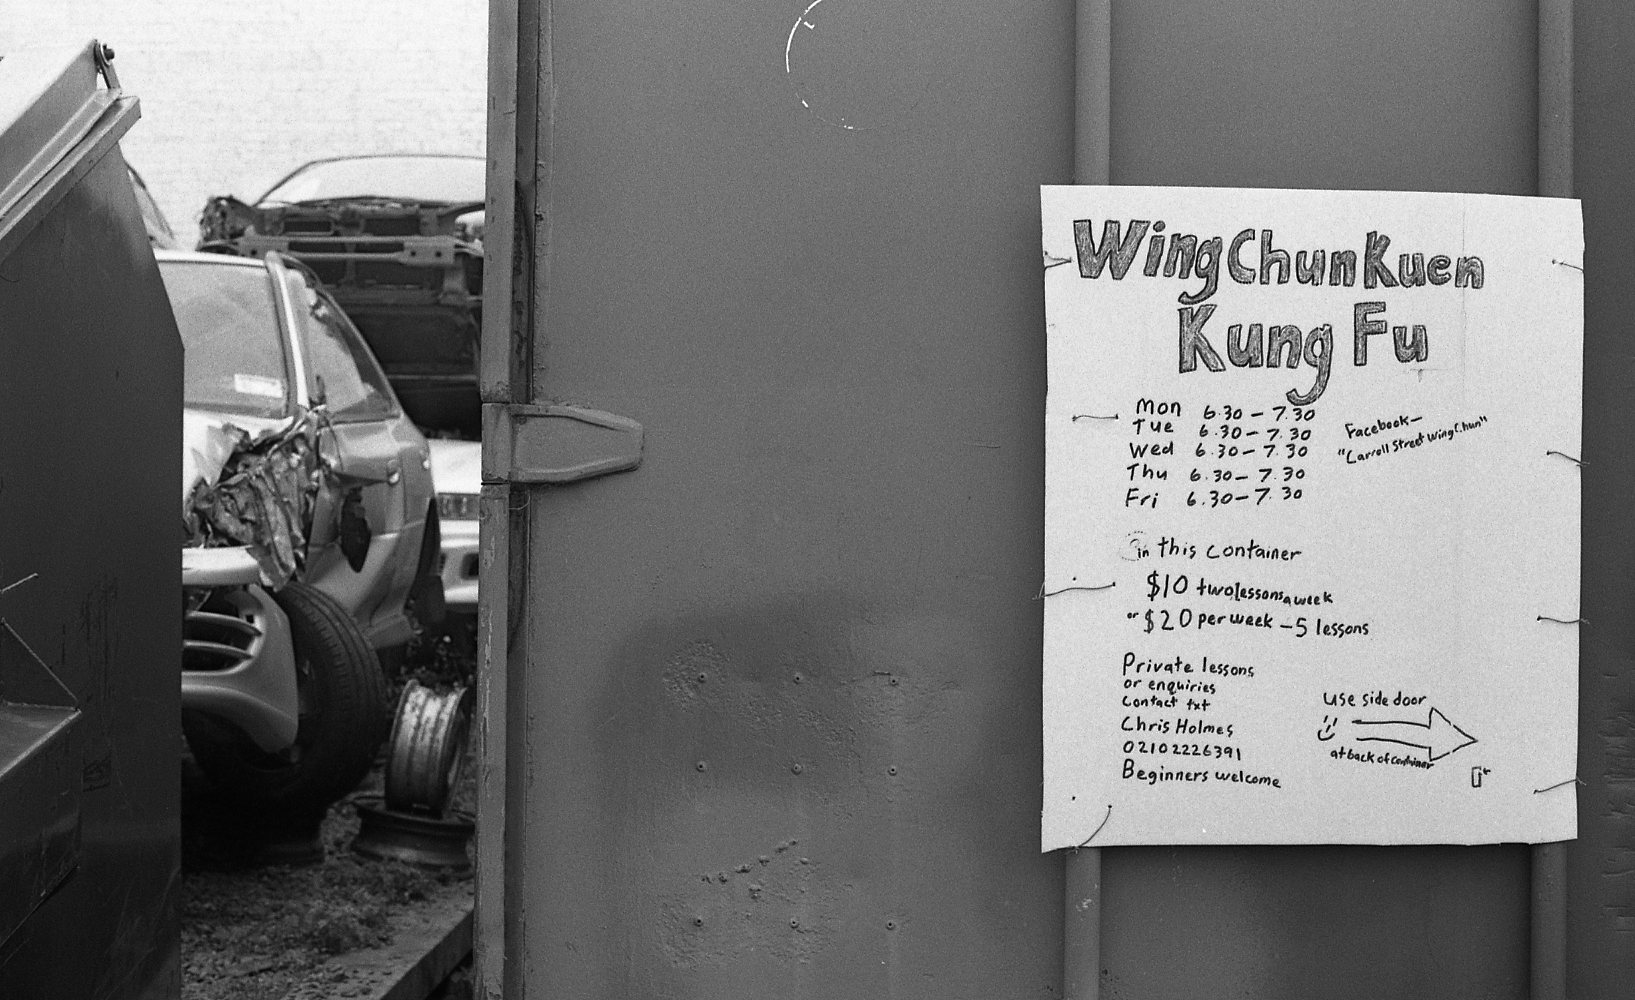 Wing Chun Kuen
Kung Fu
Mon 6.30 - 7.30
Tue 6.30 - 7.30
Wed 6.30 - 7.30
Thu 6.30 - 7.30
Fri 6.30 - 7.30
Facebook -
"Carroll Street Wing Chun"
in this container
$10 two lessons a week
or $20 per week - 5 lessons
Private lessons
or enquiries
Contact txt
Chris Holmes
02102226391
Beginners welcome
use side door
at back of container